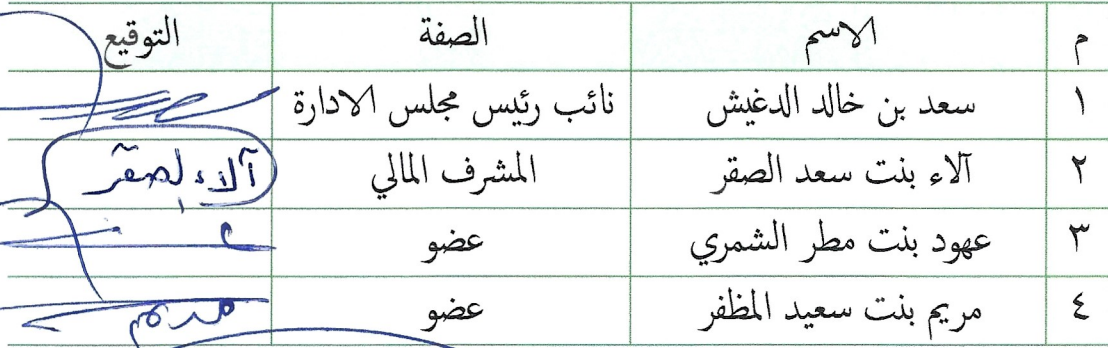 م الاسم الصفة التوقيع
١ سعد بن خالد الدغيش نائب رئيس مجلس الادارة
٢ آلاء بنت سعد الصقر المشرف المالي آلاء الصقر
٣ عهود بنت مطر الشمري عضو
٤ مريم بنت سعيد المظفر عضو مريم